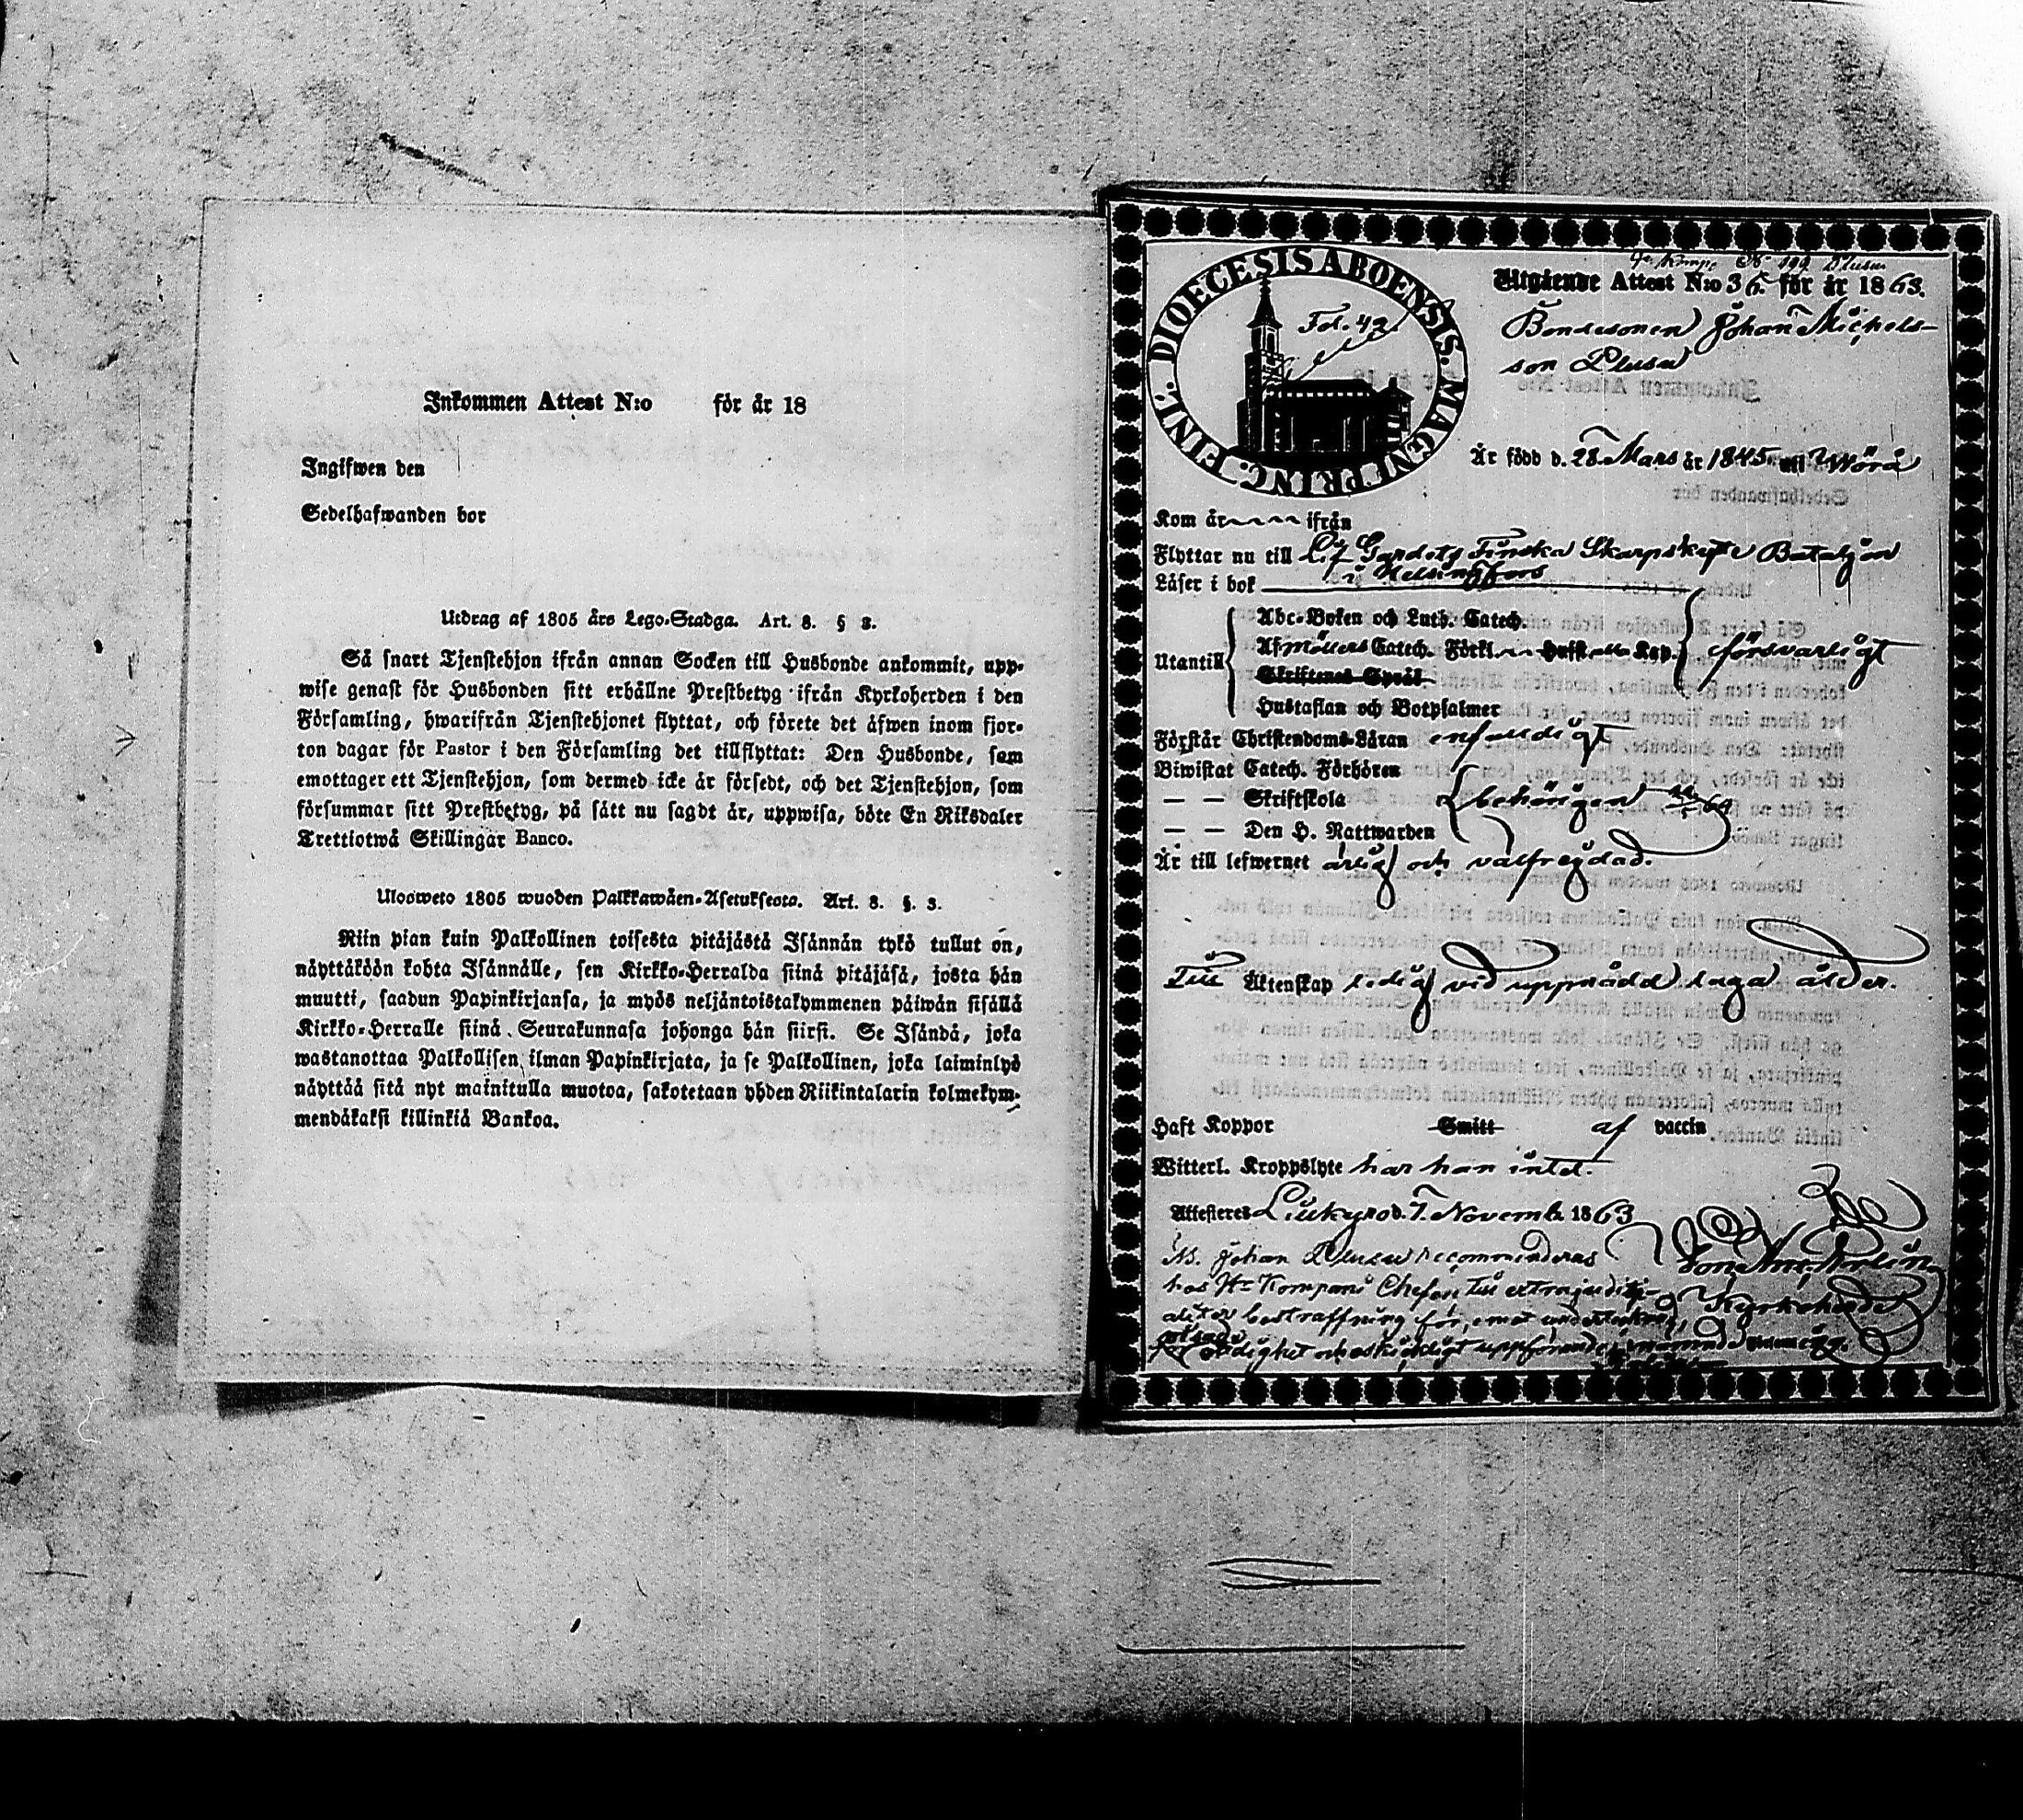 Inkommen Attest N:o för år 18
Ingifwen den
Sedelhafwanden bor
Utdrag af 1805 års Lego-Stadga. Art. 8. § 3.
Så snart Tjenstehjon ifrån annan Socken till Husbonde ankommit, upp-
wise genast för Husbonden sitt erhållne Prestbetyg ifrån Kyrkoherden i den
Församling, hwarifrån Tjenstehjonet flyttat, och förete det äfwen inom fjor-
ton dagar för Pastor i den Församling det tillflyttat: Den Husbonde, som
emottager ett Tjenstehjon, som dermed icke är försedt, och det Tjenstehjon, som
försummar sitt Prestbetyg, på sätt nu sagdt är, uppwisa, böte En Riksdaler
Trettiotwå Skillingar Banco.
Ulosweto 1805 wuoden Palkkawäen-Asetuksesta. Art. 8. §. 3.
Niin pian kuin Palkollinen toisesta pitäjästä Isännän tykö tullut on,
näyttäköön kohta Isännälle, sen Kirkko-Herralda siinä pitäjäsä, josta hän
muutti, saadun Papinkirjansa, ja myös neljäntoistakymmenen päiwän sisällä
Kirkko-Herralle siinä Seurakunnasa johonga hän siirsi. Se Isändä, joka
wastanottaa Palkollisen ilman Papinkirjata, ja se Palkollinen, joka laiminlyö
näyttää sitä nyt mainitulla muotoa, sakotetaan yhden Riikintalarin kolmekym-
mendäkaksi killinkiä Bankoa.
FINL. DIOECESIS ABOENSIS. MAGNI PRINC.
Fol. 42
Utgående Attest N:o 36 för år 1863.
Bondesonen Johan Michels-
son Plusu
Är född d. 28 Mars år 1845 uti Wörå
Kom år ifrån
Flyttar nu till Lif Gardets Finska Skarpskytte Bataljon
i Helsingfors
Läser i bok
Abc-Boken och Luth. Catech.
Utantill Af Möllers Catech. Förkl. Kap. försvarligt
Skriftenes Språk
Hustaflan och Botpsalmer
Förstår Christendoms-Läran enfaldigt
Biwistat Catech. Förhören
— — Skriftskola behörigen
— — Den H. Nattwarden
Är till lefwernet ärlig och välfrejdad.
Till Äktenskap ledig vid uppnådd laga ålder.
Haft Koppor Smitt af vaccin
Witterl. Kroppslyte har han intet.
Attesteres Lillkyro d. 7 Novemb. 1863
NB. Johan Plusu recommenderas
hos Hr Kompani Chefen till extrajudici-
Kyrkoherde
bestraffning för, emot undertecknad,
uppförande